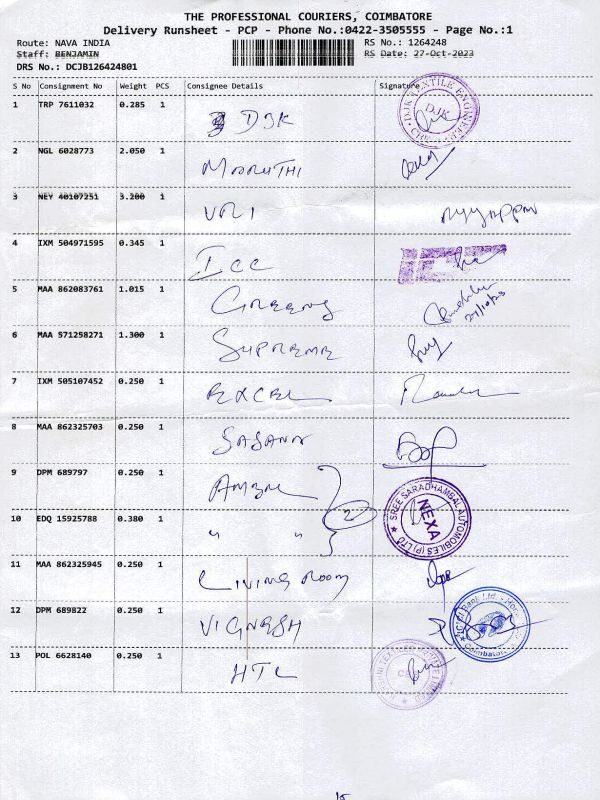 THE PROFESSIONAL COURIERS, COIMBATORE
Delivery Runsheet - PCP - Phone No.:0422-3505555 - Page No.:1
Route: NAVA INDIA RS No.: 1264248
Staff: BENJAMIN RS Date: 27-Oct-2023
DRS No.: DCJB126424801
S No Consignment No Weight PCS Consignee Details Signature
1 TRP 7611032 0.285 1 DJK
DJK TEXTILE ENGINEER
DJK
2 NGL 6028773 2.050 1 MARUTHI
3 NEY 40107251 3.200 1 VRI
4 IXM 504971595 0.345 1 ICC
5 MAA 862083761 1.015 1 GREENS
27/10/23
6 MAA 571258271 1.300 1 SUPREME
7 IXM 505107452 0.250 1 EXCEL
8 MAA 862325703 0.250 1
9 DPM 689797 0.250 1
2
SREE SARADHAMBAL AUTOMOBILES (P) LTD
NEXA
10 EDQ 15925788 0.380 1 " "
11 MAA 862325945 0.250 1 LIVING ROOM
12 DPM 689822 0.250 1 VIGNESH
Coimbatore
13 POL 6628140 0.250 1 HTL